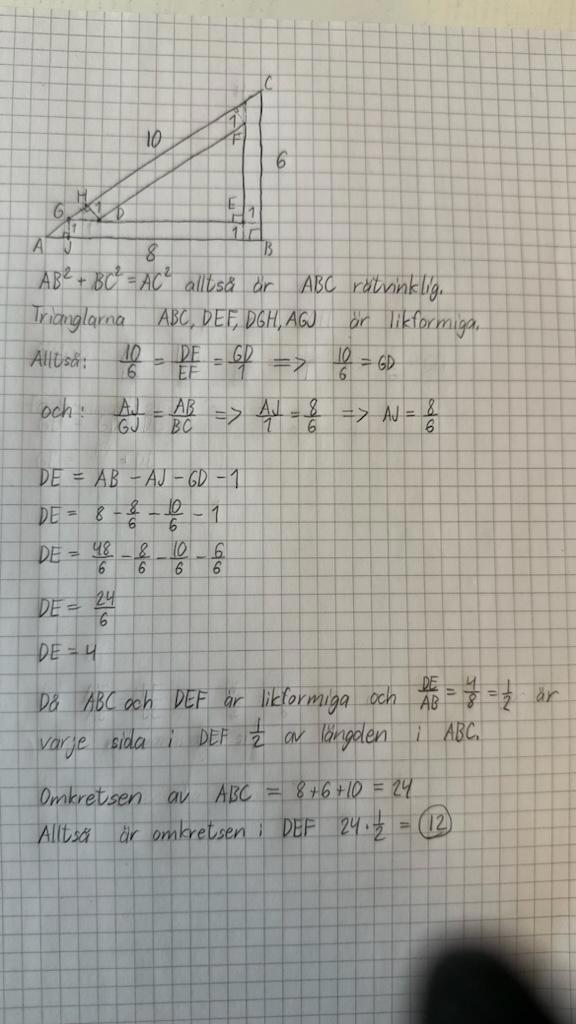 C
10
1
F
6
H
6 1 D
E
1
1
1
A J 8 B
AB² + BC² = AC² alltså är ABC rätvinklig.
Trianglarna ABC, DEF, DGH, AGJ är likformiga.
Alltså: 10/6 = DE/EF = GD/1 => 10/6 = GD
och: AJ/GJ = AB/BC => AJ/1 = 8/6 => AJ = 8/6
DE = AB - AJ - GD - 1
DE = 8 - 8/6 - 10/6 - 1
DE = 48/6 - 8/6 - 10/6 - 6/6
DE = 24/6
DE = 4
Då ABC och DEF är likformiga och DE/AB = 4/8 = 1/2 är
varje sida i DEF 1/2 av längden i ABC.
Omkretsen av ABC = 8+6+10 = 24
Alltså är omkretsen i DEF 24 · 1/2 = 12